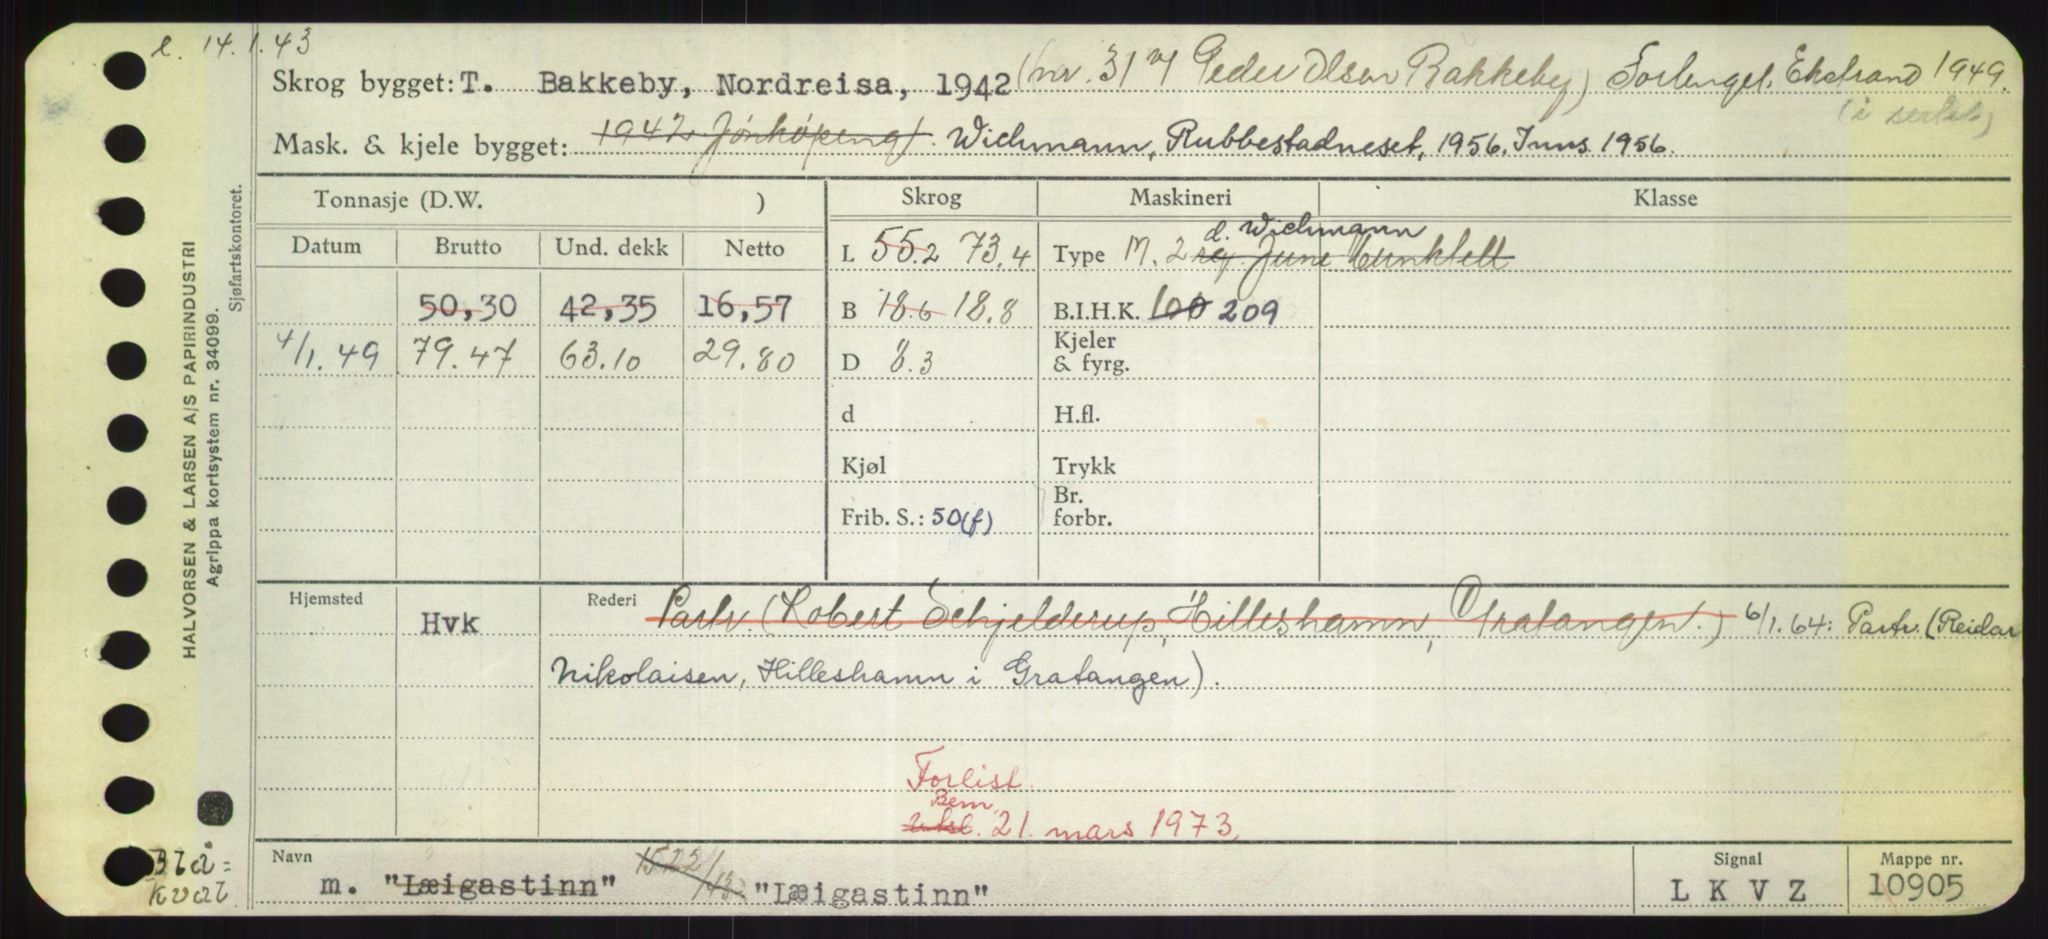 l. 14.1.43
Skrog bygget: T. Bakkeby, Nordreisa, 1942 (nr. 31 v/ Peder Olsen Bakkeby) Forlenget. Ekstrand 1949.
Mask. & kjele bygget: 1942 Jönköping). Wichmann, Rubbestadneset, 1956. Inns. 1956.
Tonnasje (D.W. ) Skrog Maskineri Klasse
Datum Brutto Und. dekk Netto L 55.2 73.4 Type M. 2 d. Wichmann June Munktell
50,30 42,35 16,57 B 18.6 18.8 B.I.H.K. 100 209
4/1.49 79.47 63.10 29.80 D 8.3 Kjeler & fyrg.
d H.fl.
Kjøl Trykk
Frib. S.: 50(f) Br. forbr.
Hjemsted Hvk Rederi Partr. (Robert Schjelderup, Hilleshamn, Gratangen.) 6/1.64: Partr. (Reidar
Nikolaisen, Hilleshamn i Gratangen).
Forlist.
Bem.
21. mars 1973
Blå=
kval
Navn m. "Læigastinn" "Læigastinn"
Signal LKVZ
Mappe nr. 10905
HALVORSEN & LARSEN A/S PAPIRINDUSTRI
Agrippa kortsystem nr. 34099.
Sjøfartskontoret.